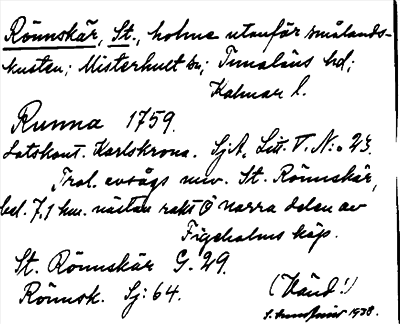 Rönnskär, St., holme utanför smålands-
kusten; Misterhult sn; Tunaläns hd;
Kalmar l.
Runna 1759.
Lotskont. Karlskrona. SjA, Litt. V. N:o 23.
Trol. avsågs nuv. St. Rönnskär,
bel. 7,1 km. nästan rakt Ö norra delen av
Figeholms köp.
St. Rönnskär G. 29.
Rönnsk. Sj: 64.
(Vänd!)
1938.